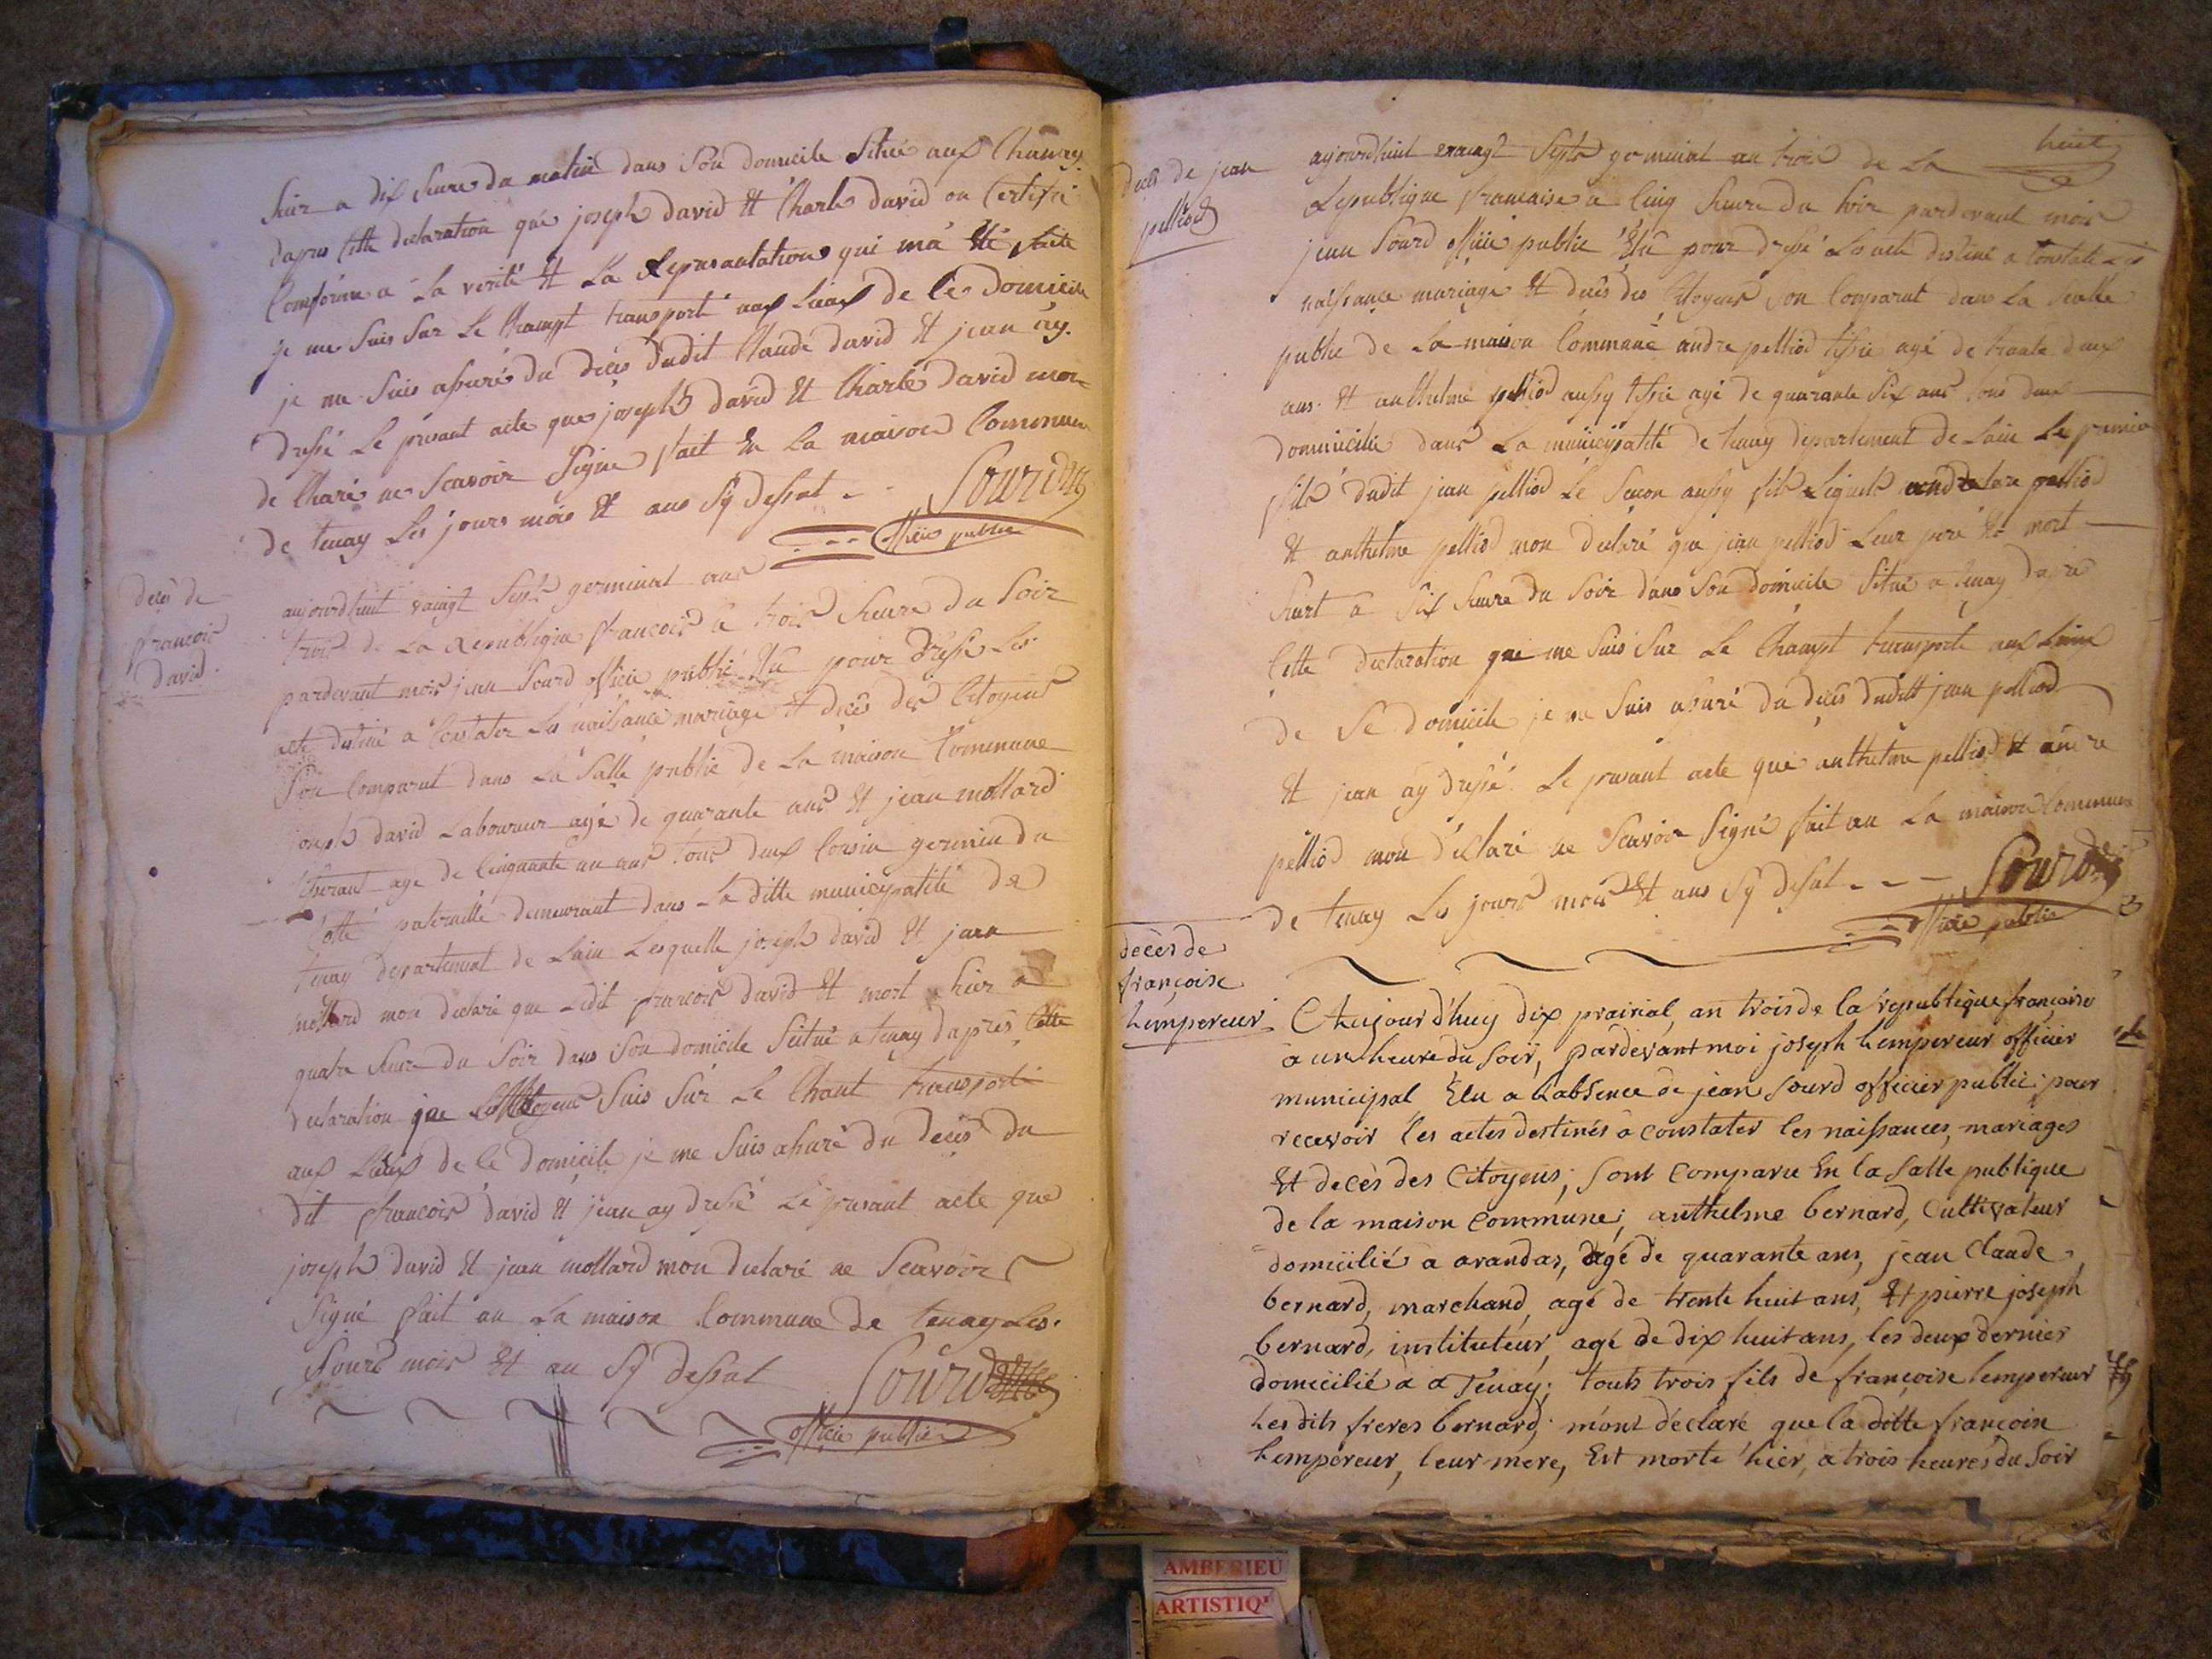 hier a dix heure du matin dans son domicile situé aux Chanay
dapres cette declaration que joseph david Et Charle david on Certifié
Comforme a La verité Et La Representation qui ma Eté faite
je me suis sur Le Champt transporté aux Lieux de Ce domicile
je me suis assuré du déces dudit Claude david Et jean ay
dressé Le present acte que joseph david Et Charle david mon
de Claré ne scavoir Signé fait En La maison Commune
de tenay Les jours mois Et ans Sy dessut
Sourd
officie public
decès de
francois
david
aujourdhuit vaingt Sept germinal ans
trois de La Republique francois a trois heure du Soir
pardevant mois jean Sourd officie public Elu pour dressé Les
acte destiné a Constater Les naissance mariage Et décès des Citoyens
Son Comparut dans La Salle public de La maison Commune
joseph david Laboureur agé de quarante ans Et jean mollard
agé de Cinquante un ans tous deux Cousin germin du
Cotté paternelle demeurant dans La ditte municipalité de
tenay departement de Lain Lesquelle joseph david Et jean
mollard mon declaré que Ledit francois david Et mort hier a
quatre heure du Soir dans Son domicile Scitué a tenay dapres Cette
declaration je me Suis Sur Le Chant transporté
aux Lieux de Ce domicile je me Suis assuré du décés du
dit francois david Et jean ay dressé Le presant acte que
joseph david Et jean mollard mon declaré ne Scavoir
Signé fait au La maison Commune de tenay Les
jours mois Et an Sy dessut
Sourd
officie public
huit
decès de jean
pelliod
aujourdhuit vaingt Septe germinal an trois de La
Republique francaise a Cinq heure du Soir pardevant mois
jean Sourd officie public Elu pour dressé Les acte destiné a Constate Les
naissance mariage Et décès des Citoyens Son Comparut dans La Scalle
public de La maison Commune andre pelliod tissie agé de trante deux
ans Et anthelme pelliod aussy tissie agé de quarante Six ans tous deux
domicilie dans La municipalité de tenay departement de Lain Le premier
fils dudit jean pelliod Le Secon aussy fils Lequels andre pelliod
Et anthelme pelliod mon declaré que jean pelliod Leur pere Et mort
hiert a Six heure du Soir dans Son domicile Situé a tenay dapre
Cette declaration que me Suis Sur Le Champt transporte aux Lieux
de Se domicile je me Suis assuré du décès dudit jean pelliod
Et jean ay dressé Le presant acte que anthelme pelliod Et andre
pelliod mon déclaré ne Scavoir Signé fait au La maison Commune
de tenay Les jours mois Et ans Sy desut
Sourd
officie public
decès de
françoise
Lempereur
Aujourd'huy dix prairial, an trois de la republique françoise
à un heure du soir, pardevant moi joseph Lempereur officier
municipal Elu a L'absence de jean Sourd officier public pour
recevoir les actes destinés à constater les naissances, mariages
Et decès des Citoyens; sont comparu En la Salle publique
de la maison Commune; anthelme bernard, Cultivateur
domicilié a arandas, agé de quarante ans, jean Claude
bernard, marchand, agé de trente huit ans, Et pierre joseph
bernard, instituteur, agé de dix huit ans, les deux dernier
domicilié à a Tenay; touts trois fils de françoise Lempereur
Lesdits freres bernard, m'ont declaré que la ditte françoise
Lempereur, leur mere, Est morte hier, à trois heures du Soir
AMBERIEU
ARTISTIQ